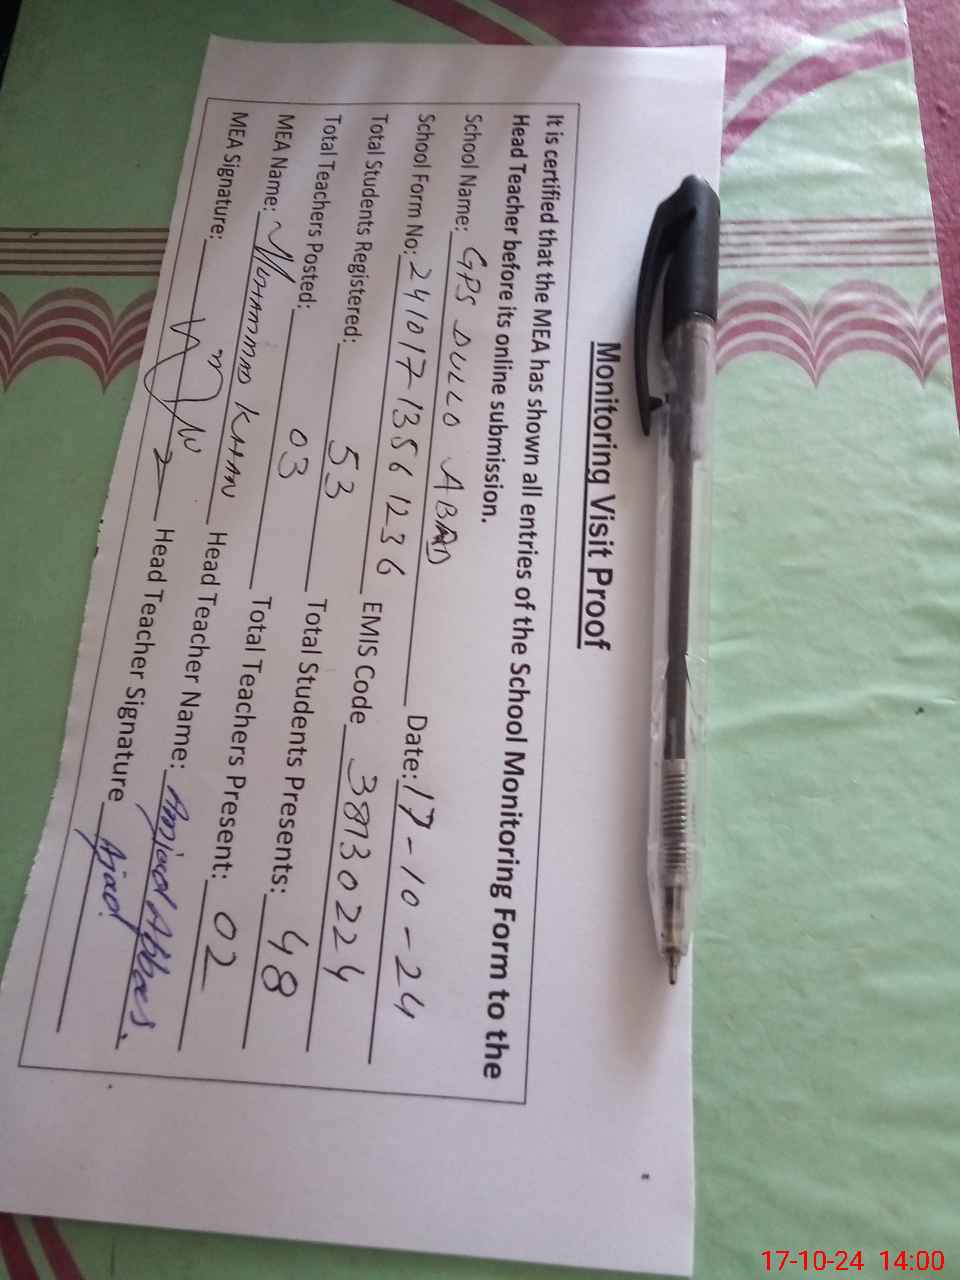 Monitoring Visit Proof
It is certified that the MEA has shown all entries of the School Monitoring Form to the
Head Teacher before its online submission.
School Name: GPS DULLO ABAD Date: 17-10-24
School Form No: 241017-1356 1236 EMIS Code 38130224
Total Students Registered: 53 Total Students Presents: 48
Total Teachers Posted: 03 Total Teachers Present: 02
MEA Name: MUHAMMAD KHAN Head Teacher Name: Amjad Abbas.
MEA Signature: Head Teacher Signature Ajad
17-10-24 14:00